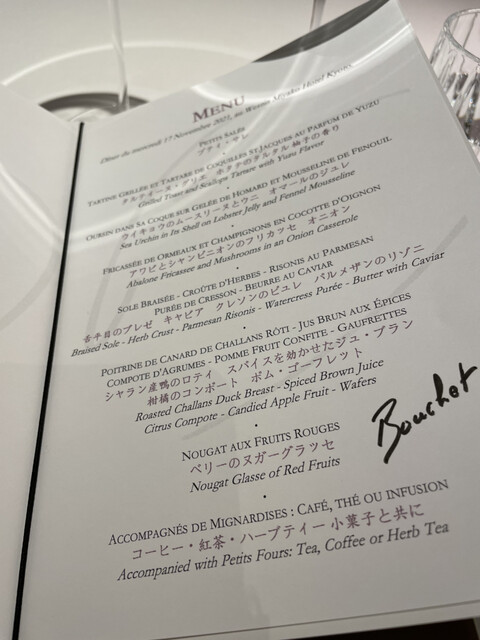 MENU
Dîner du mercredi 17 Novembre 2021, au Westin Miyako Hotel Kyoto
PETITS SALÉS
プティ・サレ
TARTINE GRILLÉE ET TARTARE DE COQUILLES ST JACQUES AU PARFUM DE YUZU
タルティーヌ・グリエ ホタテのタルタル 柚子の香り
Grilled Toast and Scallops Tartare with Yuzu Flavor
OURSIN DANS SA COQUE SUR GELÉE DE HOMARD ET MOUSSELINE DE FENOUIL
ウイキョウのムースリーヌとウニ オマールのジュレ
Sea Urchin in Its Shell on Lobster Jelly and Fennel Mousseline
FRICASSÉE DE ORMEAUX ET CHAMPIGNONS EN COCOTTE D'OIGNON
アワビとシャンピニオンのフリカッセ オニオン
Abalone Fricassee and Mushrooms in an Onion Casserole
SOLE BRAISÉE - CROÛTE D'HERBES - RISONIS AU PARMESAN
PURÉE DE CRESSON - BEURRE AU CAVIAR
舌平目のブレゼ キャビア クレソンのピュレ パルメザンのリゾニ
Braised Sole - Herb Crust - Parmesan Risonis - Watercress Purée - Butter with Caviar
POITRINE DE CANARD DE CHALLANS RÔTI - JUS BRUN AUX ÉPICES
COMPOTE D'AGRUMES - POMME FRUIT CONFITE - GAUFRETTES
シャラン産鴨のロティ スパイスを効かせたジュ・ブラン
柑橘のコンポート ポム・ゴーフレット
Roasted Challans Duck Breast - Spiced Brown Juice
Citrus Compote - Candied Apple Fruit - Wafers
Bouchet
NOUGAT AUX FRUITS ROUGES
ベリーのヌガーグラッセ
Nougat Glasse of Red Fruits
ACCOMPAGNÉS DE MIGNARDISES : CAFÉ, THÉ OU INFUSION
コーヒー・紅茶・ハーブティー 小菓子と共に
Accompanied with Petits Fours: Tea, Coffee or Herb Tea